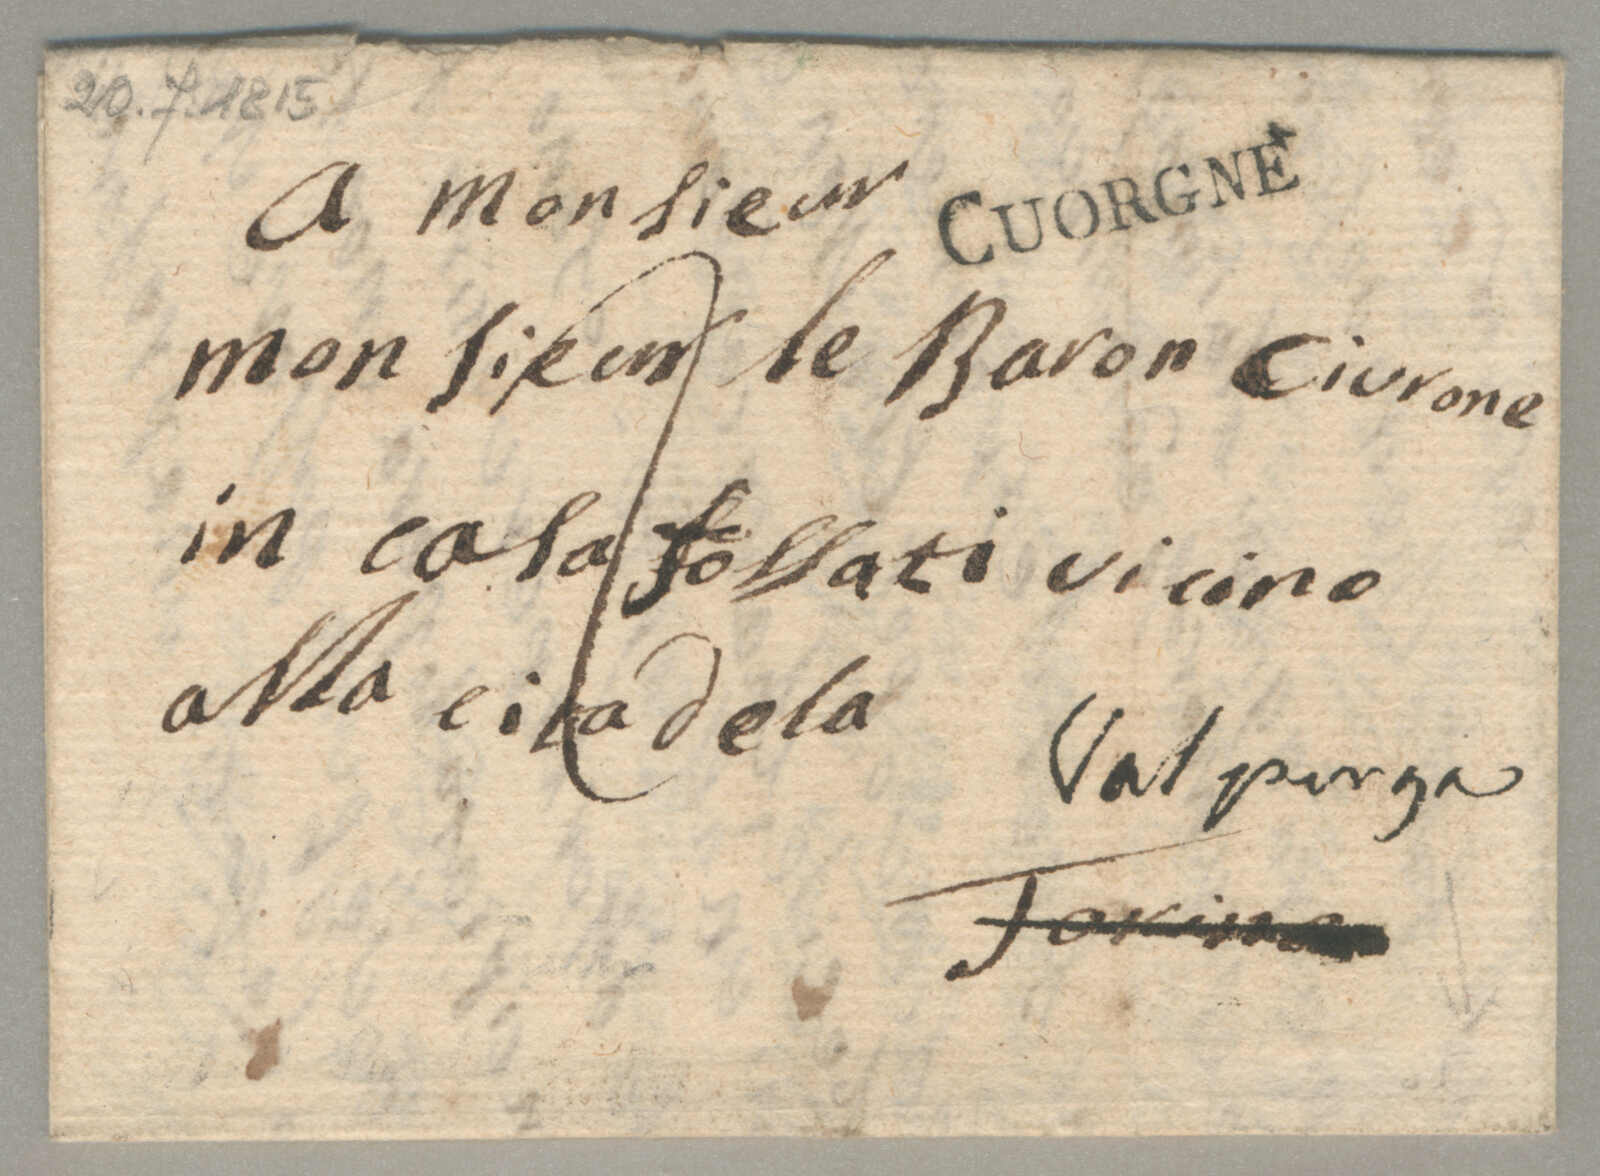 20.7.1815
A Monsieur
CUORGNÈ
monsieur le Baron Civrone
in casa follati vicino
alla citadela
Valperga
Torino